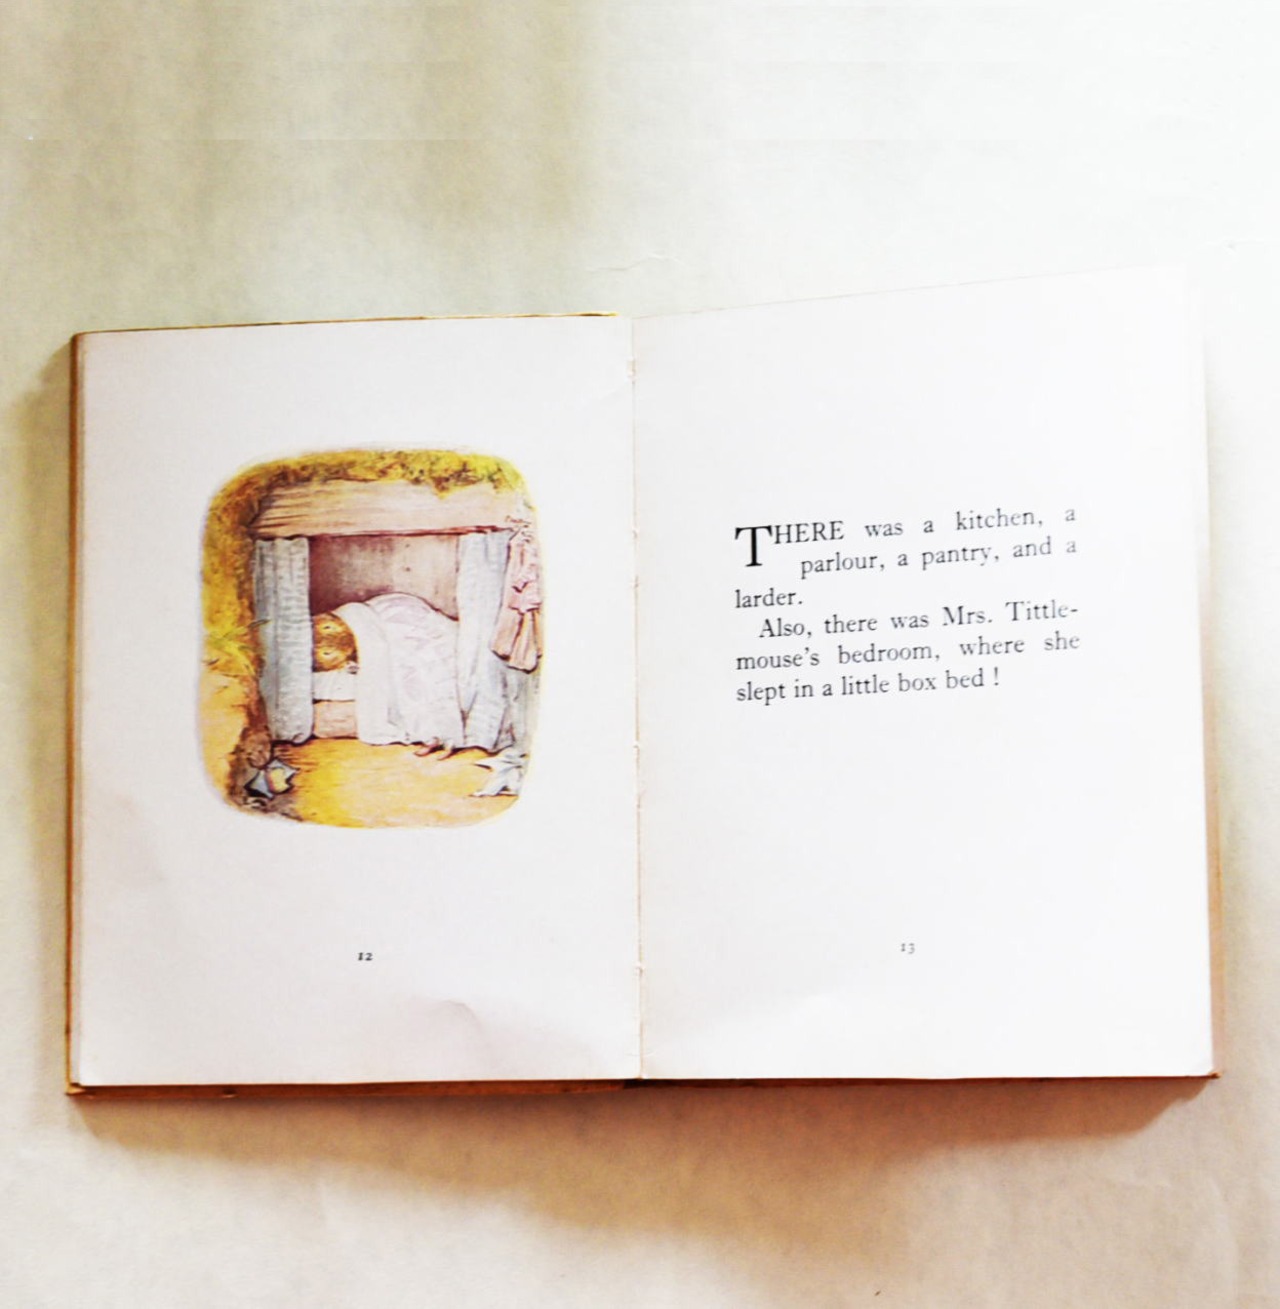 THERE was a kitchen, a
parlour, a pantry, and a
larder.
Also, there was Mrs. Tittle-
mouse's bedroom, where she
slept in a little box bed !
12
13